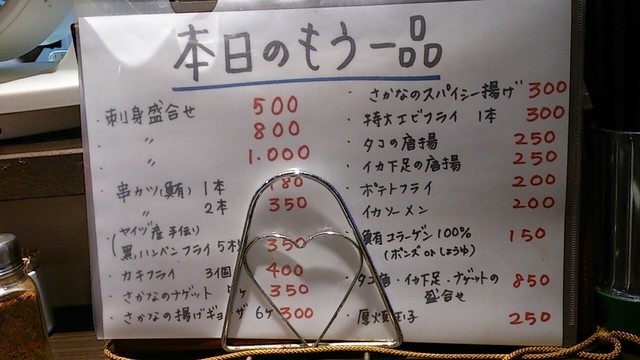 本日のもう一品
・刺身盛合せ 500
・〃 800
・〃 1.000
・串カツ(鮪) 1本 180
〃 2本 350
(ヤイヅ産 手伝い)
黒ハンペンフライ 5本 350
・カキフライ 3個 400
・さかなのナゲット 5ヶ 350
・さかなの揚げギョーザ 6ヶ 300
・さかなのスパイシー揚げ 300
・特大エビフライ 1本 300
・タコの唐揚 250
・イカ下足の唐揚 250
・ポテトフライ 200
・イカソーメン 200
・鮪コラーゲン100% 150
(ポンズ or しょうゆ)
・タコ唐・イカ下足・ナゲットの 850
盛合せ
・厚焼玉子 250